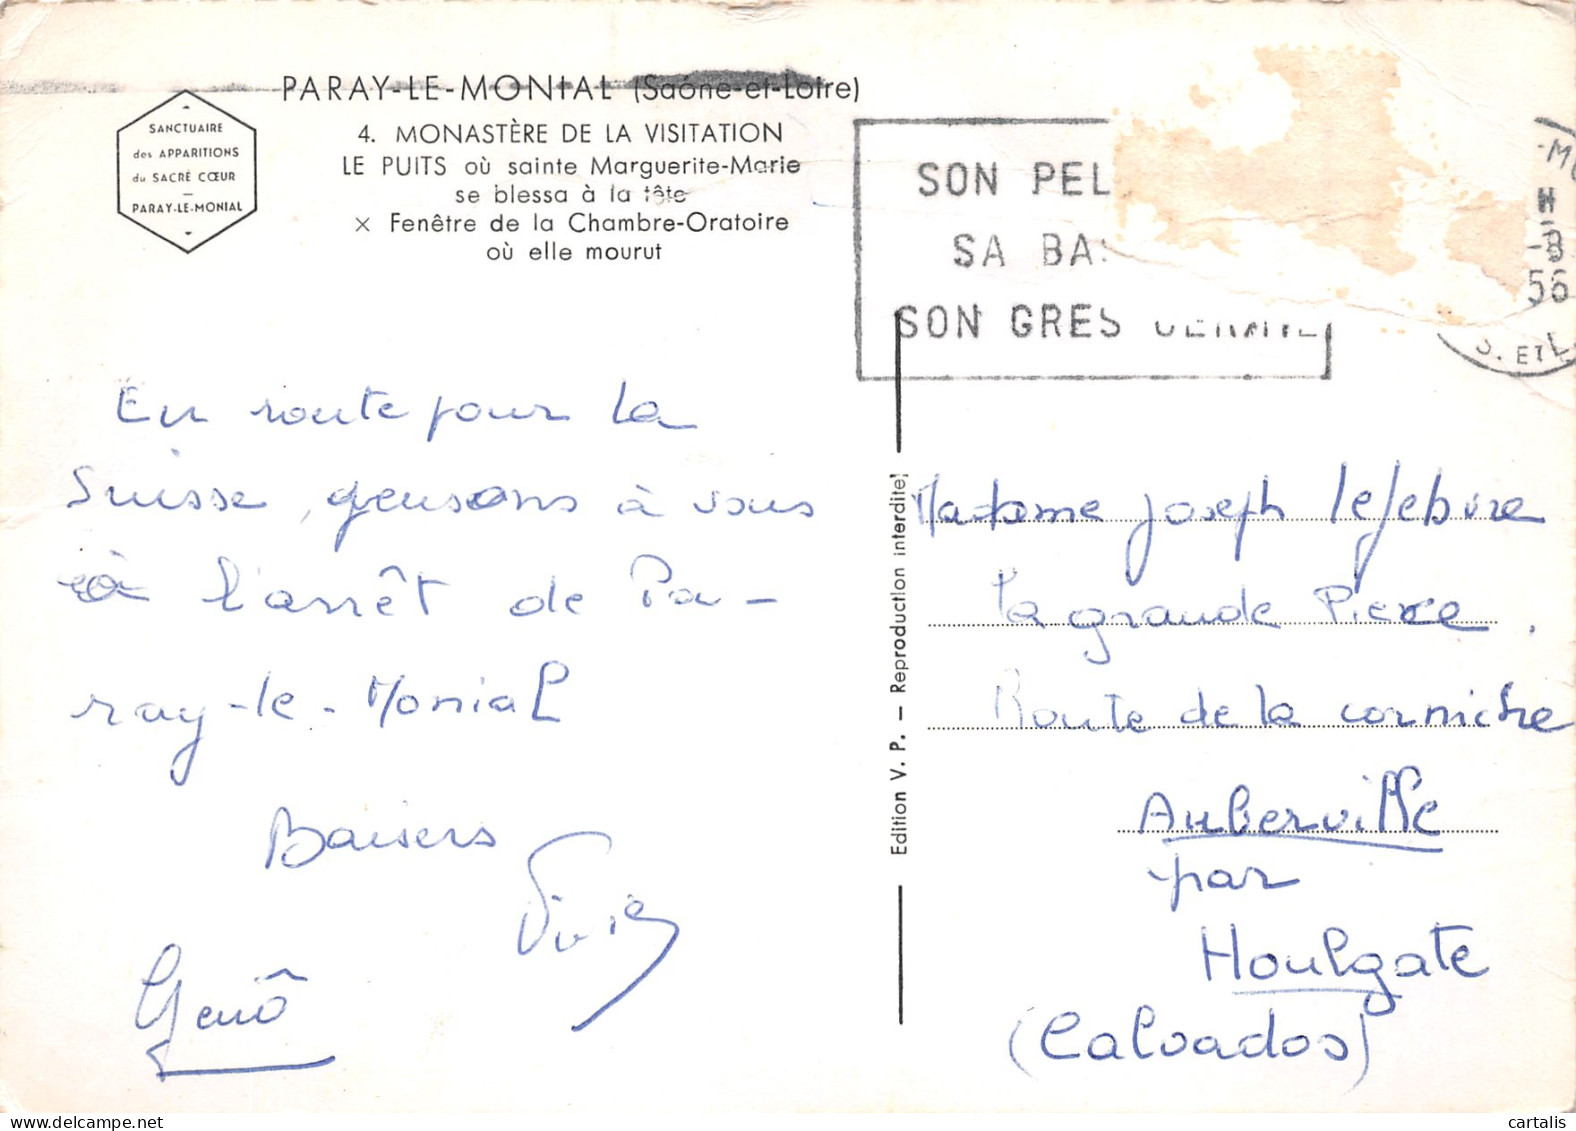 PARAY-LE-MONIAL (Saône-et-Loire)
4. MONASTÈRE DE LA VISITATION
LE PUITS où sainte Marguerite-Marie
se blessa à la tête
× Fenêtre de la Chambre-Oratoire
où elle mourut
SANCTUAIRE
des APPARITIONS
du SACRÉ CŒUR
PARAY-LE-MONIAL
SON PEL
SA BAS
SON GRES CERAME
-MO
H
-8
56
S. ET L
En route pour la
Suisse, pensons à vous
à l'arrêt de Pa-
ray-le-Monial
Baisers
Genô
Edition V. P. — Reproduction interdite
Madame Joseph Lefebvre
La grande Pierre.
Route de la corniche
Auberville
par
Houlgate
(Calvados)
cartalis